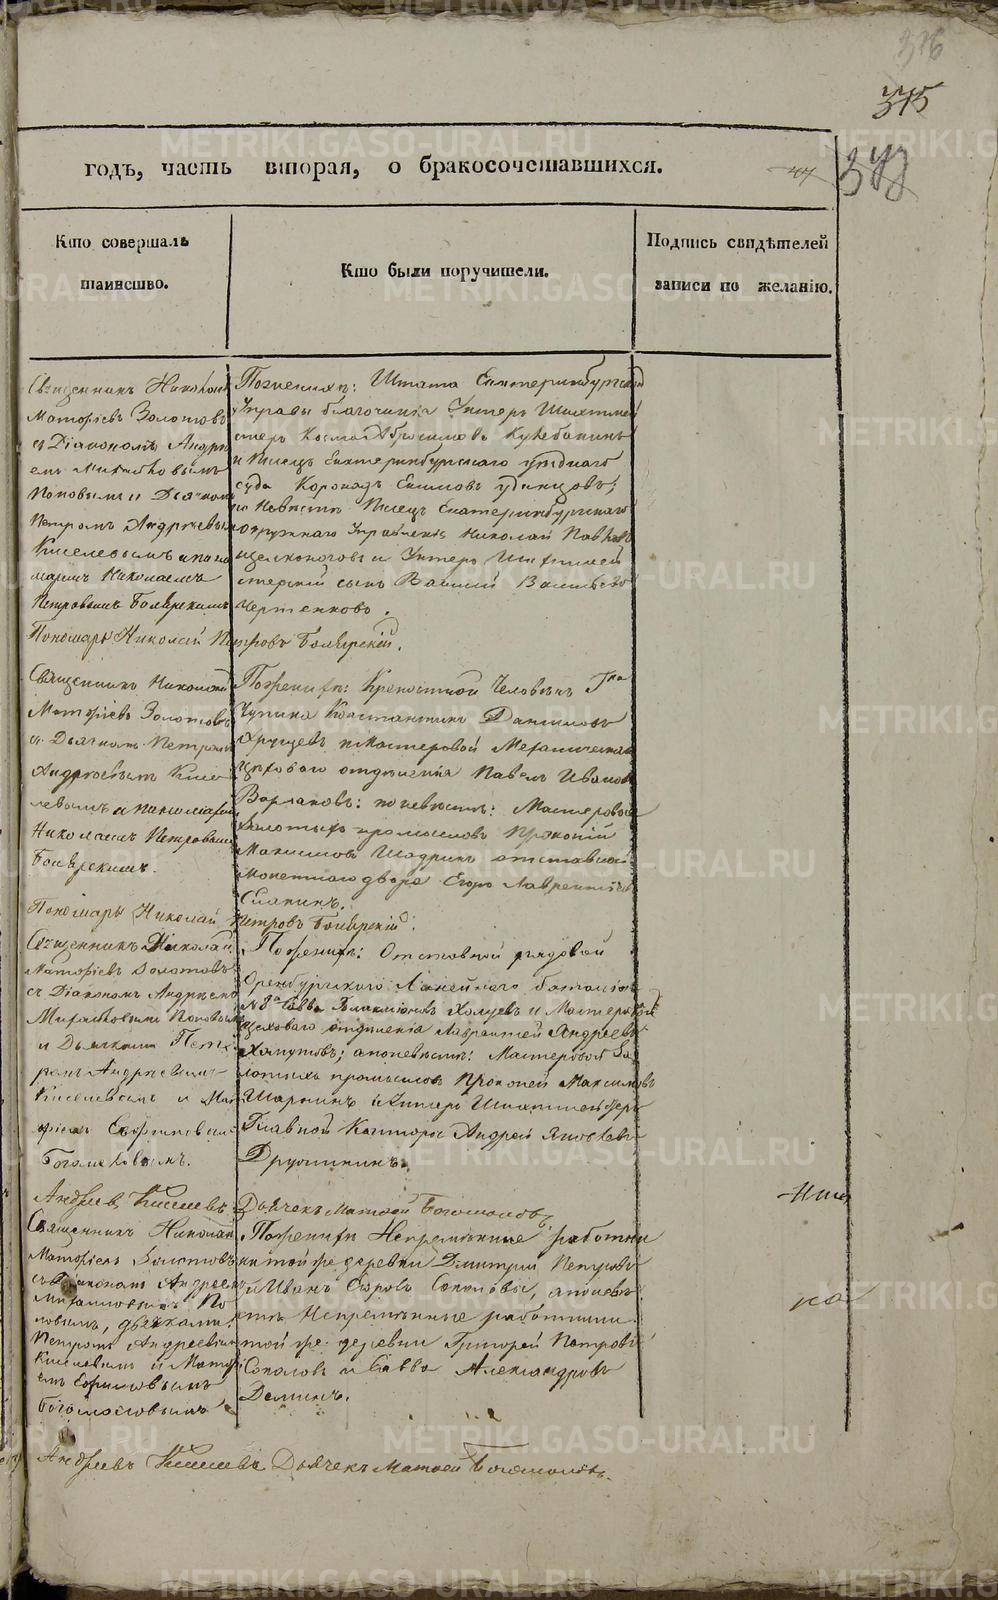 375
годъ, часть вторая, о бракосочетавшихся.
Кто совершалъ
таинство.
Кто были поручители.
Подпись свидѣтелей
записи по желанію.
Священникъ Николай
Матфіевъ Золотовъ
съ Діакономъ Андре
емъ Михайловымъ
Поповымъ и Дьячкомъ
Петромъ Андреевымъ
Киселевымъ и поно
маремъ Николаемъ
Петровымъ Боярскимъ
По женихѣ: Штата Екатеринбургской
Управы благочинія Унтеръ Шихтмей
стеръ Косма
и Писецъ Екатеринбургскаго уѣзднаго
суда
по невѣстѣ Писецъ Екатеринбургскаго
Окружнаго Управленія Николай Павловъ
и Унтеръ Шихтмей
стерскій сынъ Василій Васильевъ
Чертенковъ.
Пономарь Николай Петровъ Боярскій.
Священникъ Николай
Матфіевъ Золотовъ
съ Дьячкомъ Петромъ
Андреевымъ Кисе
левымъ и пономаремъ
Николаемъ Петровымъ
Боярскимъ.
По женихѣ: Крепостной Человѣкъ Гна
Константинъ Даниловъ
и Мастеровой Механическаго
Цеховаго отдѣленія Павелъ Ивановъ
Варлаковъ: по невѣстѣ: Мастеровой
Золотыхъ промысловъ Прокопій
Максимовъ отставной
Монетнаго двора Егоръ Лаврентіевъ
Пономарь Николай Петровъ Боярскій.
Священникъ Николай
Матфіевъ Золотовъ
съ Діакономъ Андреемъ
Михайловымъ Поповымъ
и Дьячками Пет
ромъ Андреевымъ
Киселевымъ и Мат
фіемъ Ефимовымъ
Богомоловымъ.
По женихѣ: Отставной рядовой
Оренбургскаго Линейнаго баталіона
Савва и Мастеровой
Цеховаго отдѣленія Лаврентей Андреевъ
Хомутовъ; а по невѣстѣ: Мастеровой Зо
лотыхъ промысловъ Прокопей Максимовъ
и Унтеръ Шихтмейстеръ
Главной Конторы Андрей Яковлевъ
Дружининъ.
Андреевъ Киселевъ Дьячекъ Матвей Богомоловъ
Священникъ Николай
Матфіевъ Золотовъ
съ Діакономъ Андреемъ
Михайловымъ По
повымъ, дьячками:
Петромъ Андреевымъ
Киселевымъ и Матфі
емъ Ефимовымъ
Богомоловымъ
По женихѣ Непремѣнные работни
ки той же деревни Дмитрій Петровъ
и Иванъ Соколовы, а по невѣ
стѣ Непремѣнные работники
той же деревни Григорей Петровъ
Соколовъ и Савва Александровъ
Деминъ.
Андреевъ Киселевъ Дьячекъ Матвей Богомоловъ.
METRIKI.GASO-URAL.RU